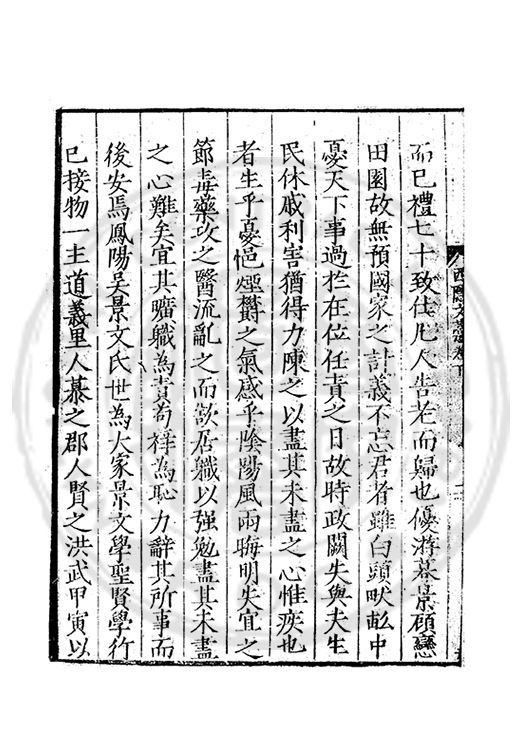 而已禮七十致仕凡人告老而歸也優游暮景顧戀
田園故無預國家之計義不忘君者雖白頭畎畝中
憂天下事過於在位任責之日故時政闕失與夫生
民休戚利害猶得力陳之以盡其未盡之心惟疾也
者生乎憂悒堙欝之氣感乎陰陽風雨晦明失宜之
節毒藥攻之醫流亂之而欲居職以强勉盡其未盡
之心難矣宜其曠職為責苟祿為恥力辭其所事而
後安焉鳳陽吳景文氏世為大家景文學聖賢學行
已接物一主道義里人慕之郡人賢之洪武甲寅以